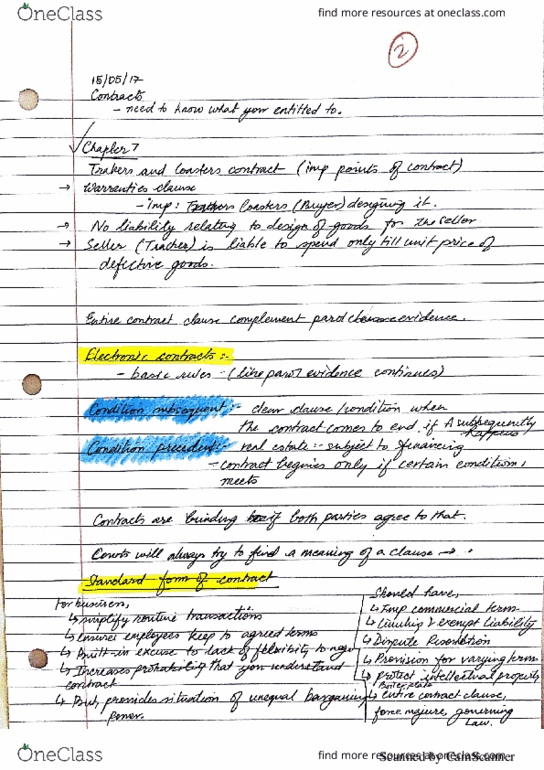 OneClass
find more resources at oneclass.com
2
15/05/17
Contracts
- need to know what your entitled to.
Chapter 7
Trakers and Coasters contract (imp points of contract)
→ Warranties clause
- imp: Coasters (Buyer) designing it.
→ No liability relating to design of goods for the seller
→ Seller (Tracker) is liable to spend only till unit price of
defective goods.
Entire contract clause complement parol evidence.
Electronic contracts :-
- basic rules - (like parol evidence continues)
Condition subsequent :- clear clause/condition when
the contract comes to end, if A subsequently
happens
Condition precedent :- real estate :- subject to financing
- contract begins only if certain conditions
meets
Contracts are binding if both parties agree to that.
Courts will always try to find a meaning of a clause →
Standard form of contract
For business,
↳ simplify routine transactions
↳ ensures employees keep to agreed terms
↳ Built-in excuse to lack of flexibility to nego
↳ Increases probability that you understand
contract
↳ But, provides situation of unequal bargaining
power.
Should have,
↳ Imp commercial term
↳ Limiting & exempt liability
↳ Dispute Resolution
↳ Provision for varying term
↳ protect intellectual property
Boiler plate
↳ entire contract clause,
force majure, governing
Law.
OneClass
find more resources at oneclass.com
Scanned by CamScanner